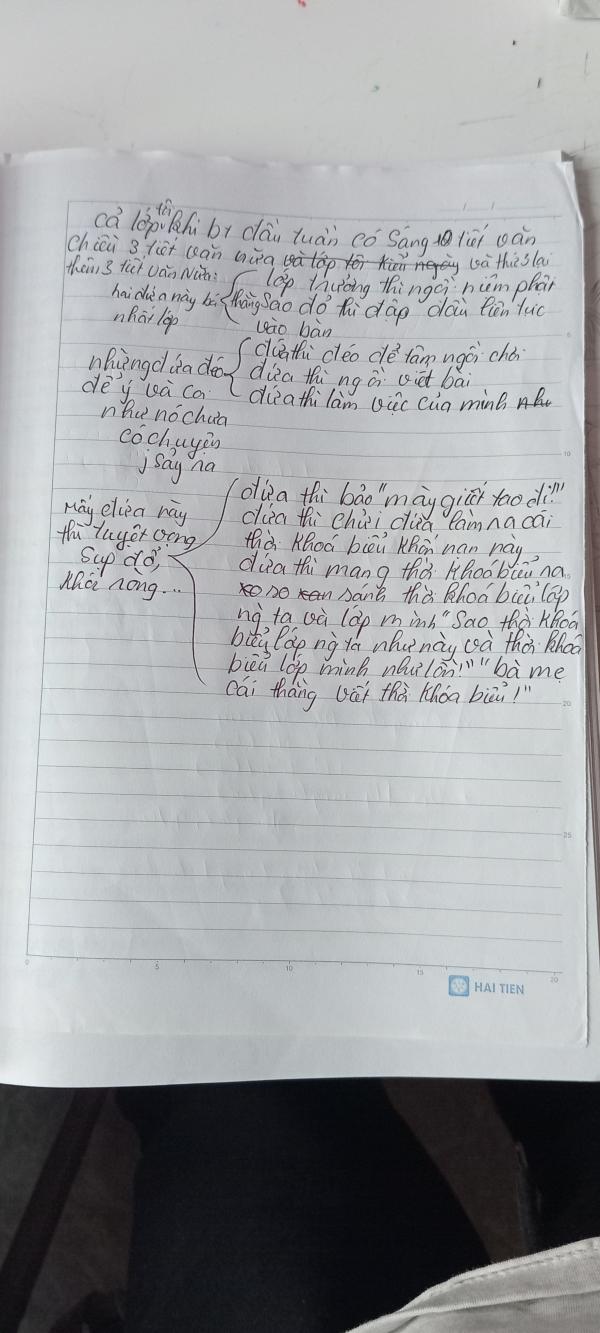 cả lớp tôi khi bt đầu tuần có sáng 10 tiết văn
chiều 3 tiết văn nữa và lớp tôi kiểu ngày và thứ 3 lại
thêm 3 tiết văn nữa:
hai đứa này bị
nhất lớp
lớp trưởng thì ngồi niệm phật
thằng sao đỏ thì đập đầu liên tục
vào bàn
những đứa đéo
để ý và coi
như nó chưa
có chuyện
j sảy na
đứa thì déo để tâm ngồi chơi
đứa thì ngồi viết bài
đứa thì làm việc của mình như
Mấy đứa này
thì tuyệt vọng
sụp đổ,
khóc ròng...
đứa thì bảo "mày giết tao đi!"
đứa thì chửi đứa làm na cái
thời khoá biểu khốn nạn này
đứa thì mang thời khoá biểu na
xo so xan sánh thời khoá biểu lớp
ng ta và lớp mình "Sao thời khoá
biểu lớp ng ta như này và thời khoá
biểu lớp mình như lồn!" "bà mẹ
cái thằng viết thời khóa biểu!"
5
10
20
25
0 5 10 15 20
HAI TIEN